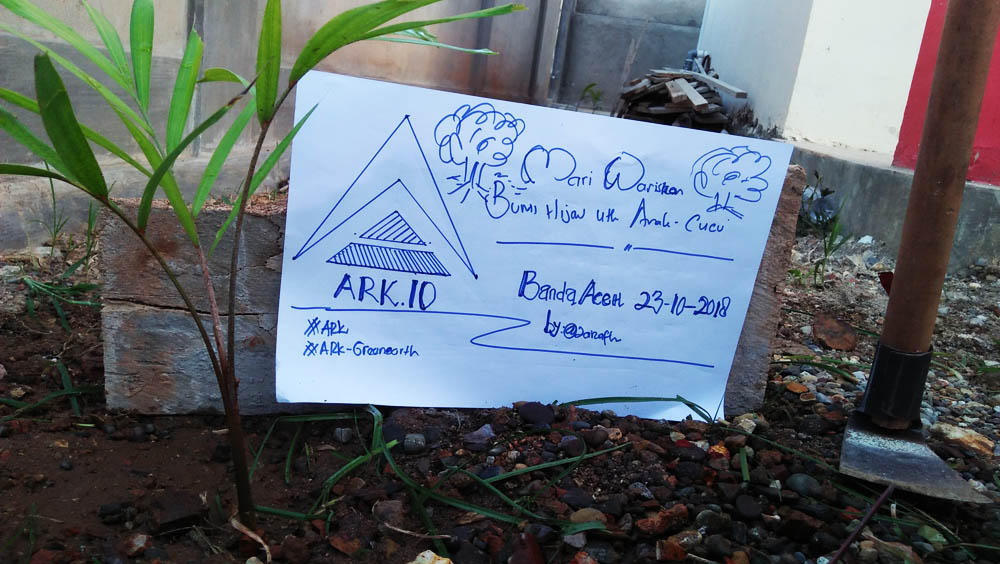 Mari Wariskan
Bumi Hijau utk Anak-Cucu
ARK.IO
#ARK
#ARK-Greenearth
Banda Aceh 23-10-2018
by: